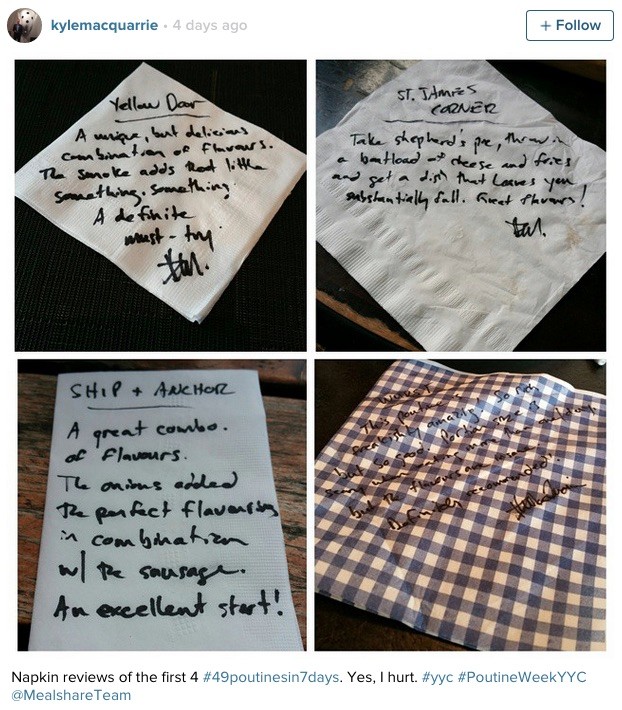 kylemacquarrie • 4 days ago
+ Follow
Yellow Door
A unique, but delicious
combination of flavours.
The smoke adds that little
something, something.
A definite
must-try
ST. JAMES
CORNER
Take shepherd's pie, throw in
a boatload of cheese and fries
and get a dish that leaves you
substantially full. Great flavours!
SHIP + ANCHOR
A great combo.
of flavours.
The onions added
the perfect flavouring
in combination
w/ the sausage.
An excellent start!
WURST
This poutine is
freakishly amazing! So rich
but so good. Portion size is
more than
but the flavours are
Definitely recommended!
Napkin reviews of the first 4 #49poutinesin7days. Yes, I hurt. #yyc #PoutineWeekYYC
@MealshareTeam